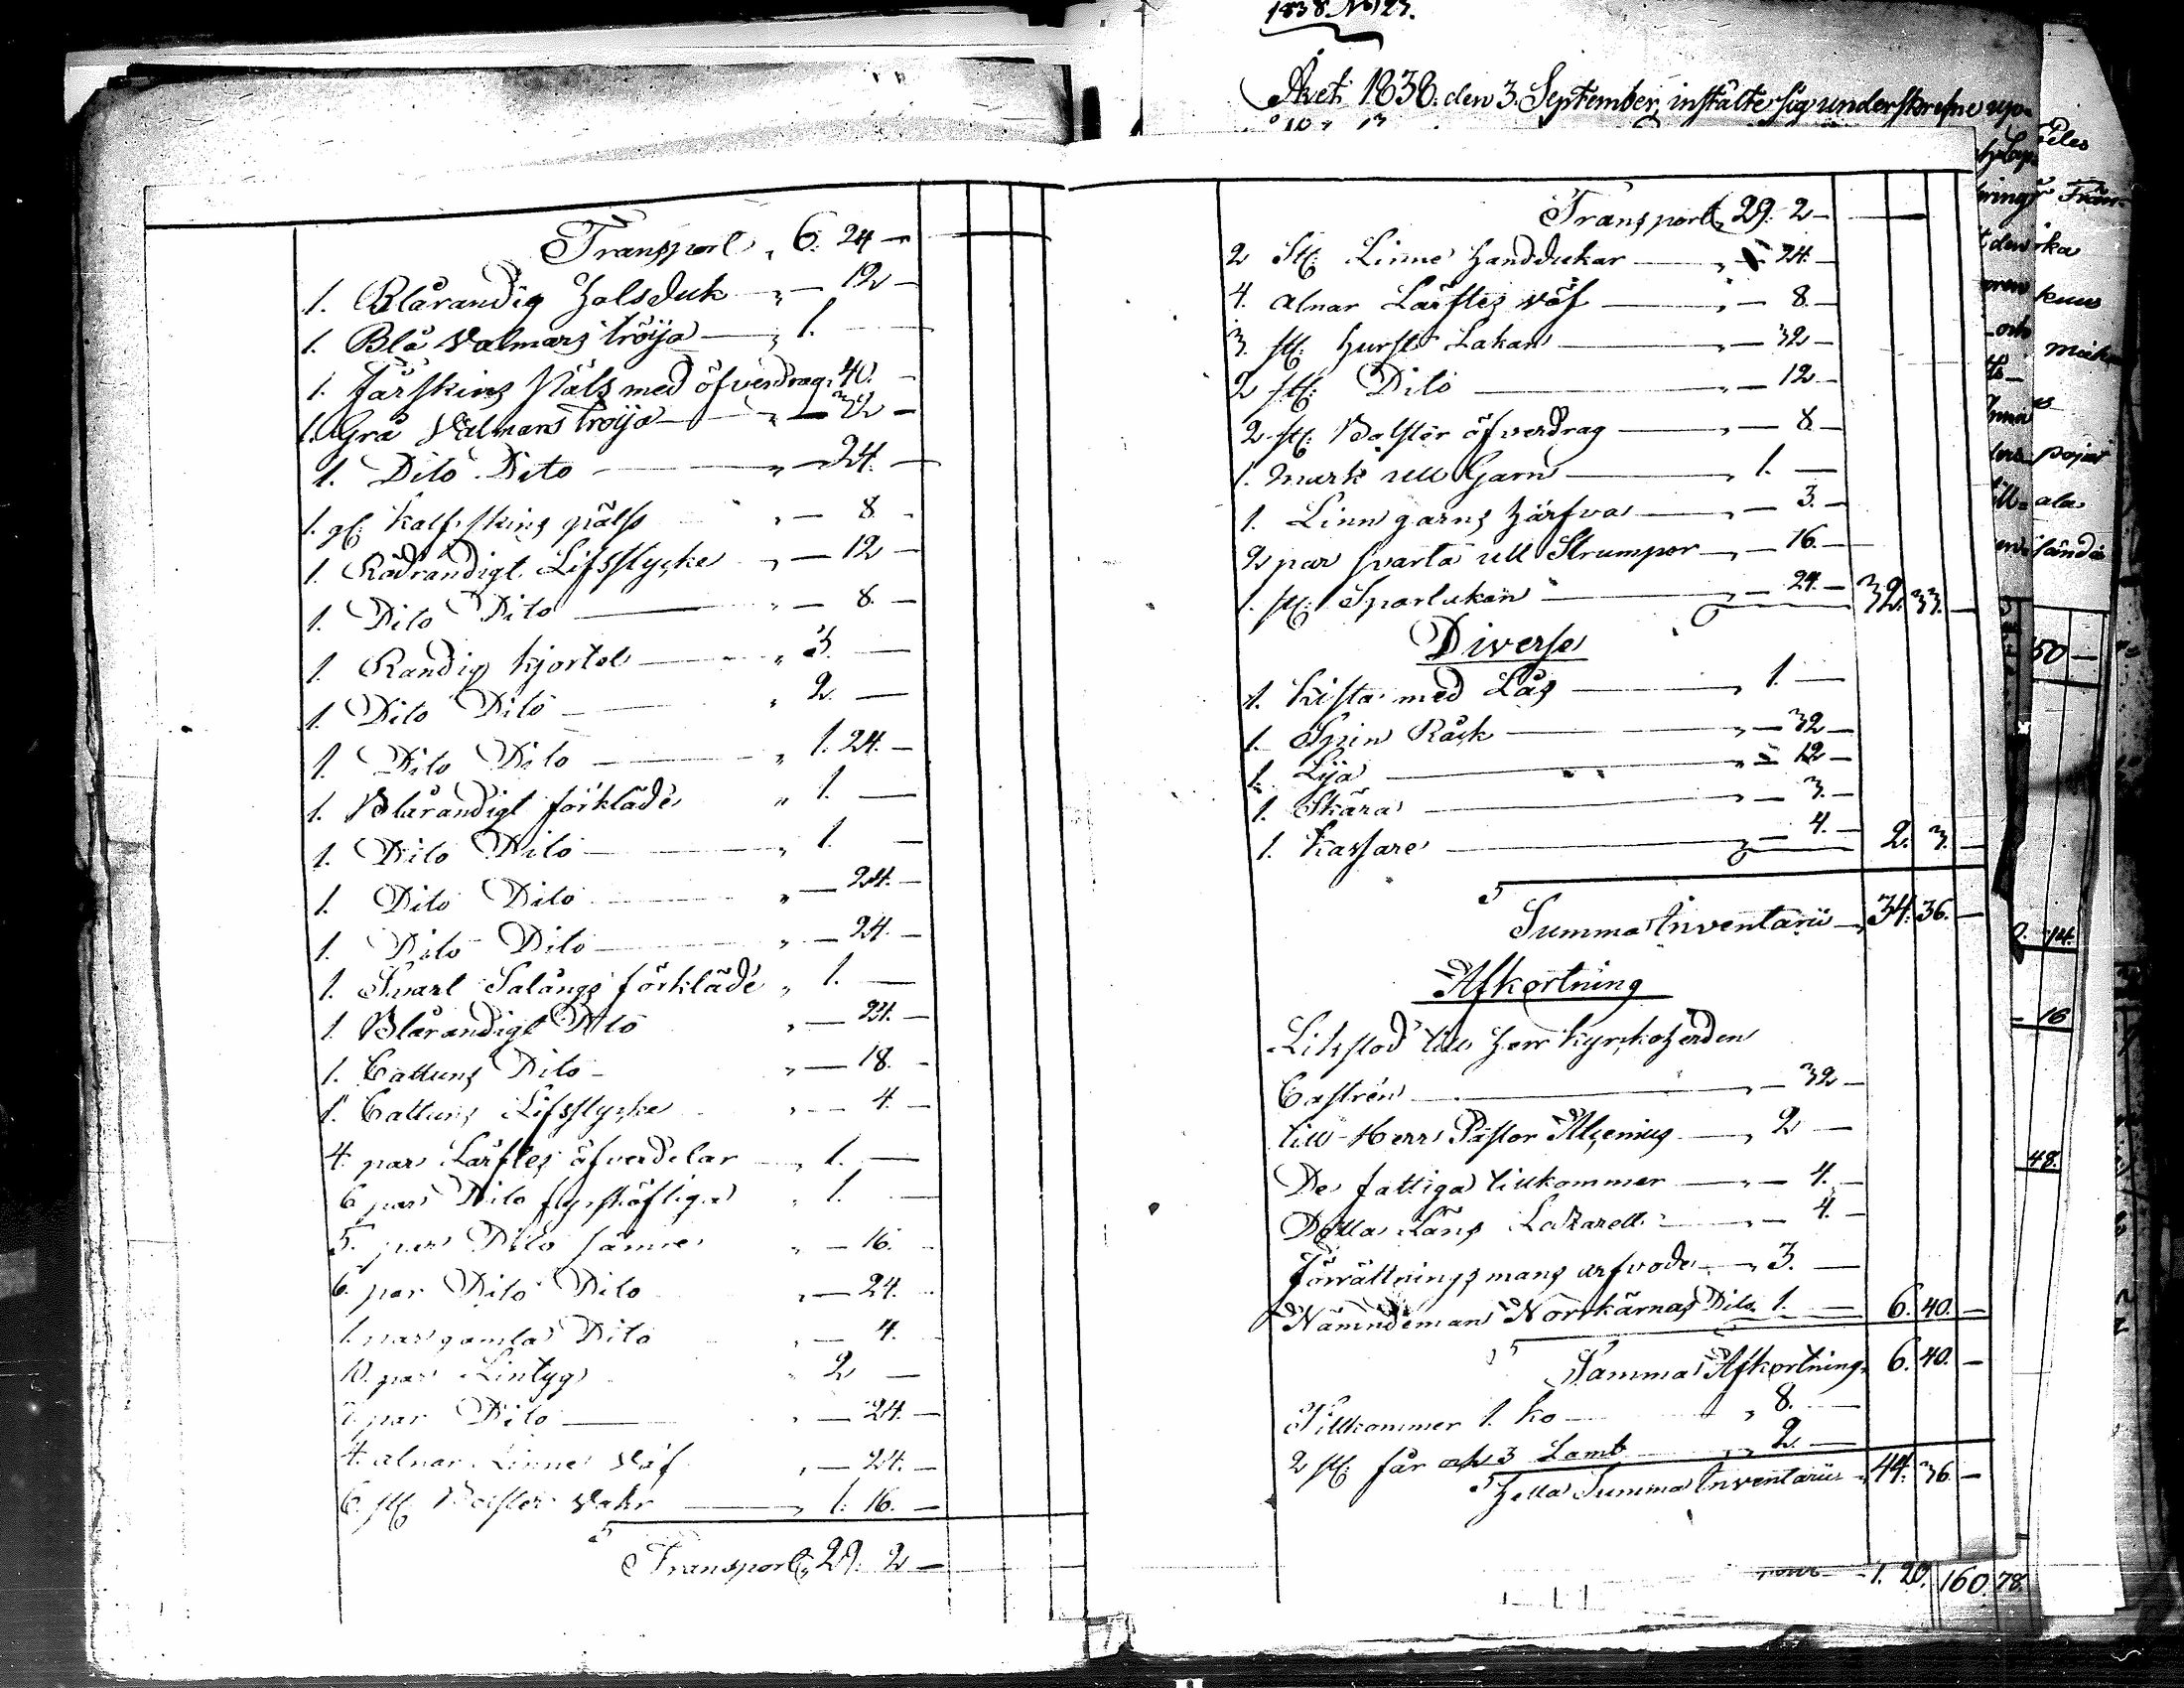 Transport " 6. 24 —
1. Blårandig Halsduk " — 12 —
1. Blå Valmars tröija — " 1. —
1. Fårskins Päls med öfverdrag " 40. —
1. Grå Valmars tröija — " — 32 —
1. Dito Dito — " — 24. —
1. gl: Kalfskins päls " — 8 —
1. Rödrandigt Lifstycke " — 12 —
1. Dito Dito — " — 8. —
1. Randig kjortel — " 3. —
1. Dito Dito — " 2. —
1. Dito Dito — " 1. 24. —
1. Blårandigt förkläde " 1. —
1. Dito Dito — " 1. —
1. Dito Dito — " — 24. —
1. Dito Dito — " — 24. —
1. Svart Salångs förkläde " 1. —
1. Blårandigt Dito " — 24. —
1. Cattuns Dito — " — 18. —
1. Cattuns Lifstycke " — 4. —
4. par Lärftes öfverdelar " 1. —
6 par Dito fyrskäftiga " 1. —
5. par Dito sämre " — 16. —
6. par Dito Dito " — 24. —
1. par gamla Dito " — 4. —
10. par Lintyg " 2 —
7 par Dito — " — 24. —
4. alnar Linne Väf " — 24. —
6. st: Bolster Vahr — " 1. 16. —
Transport " 29. 2 —
1838 No 123.
Året 1838. den 3. September, instälte sig underskrefne
Transport " 29. 2 —
2 st: Linne Handdukar — " — 24. —
4. alnar Lärftes väf — " — 8. —
3. st: Hurst Lakan — " — 32 —
2 st: Dito — " — 12 —
2 st: Bolster öfverdrag — " — 8. —
1. mark ull Garn — " 1. —
1. Linn garns Härfva — " — 3. —
2 par svarta ull Strumpor — " — 16. —
1. st: Sparlakan — " — 24. — 32. 33. —
Diverse
1. Kista med Lås — " 1. —
1. Spin Råck — " — 32 —
1. Lija — " — 12 —
1. Skära — " — 3. —
1. Kassare — " — 4. — 2. 3. —
Summa Inventarii — 34. 36. —
Afkortning
Likstod till Herr Kyrkoherden
Castrén — " — 32 —
till Herr Pastor Alcenius — " 2 —
De fattiga tillkommer — " — 4. —
Detta Läns Lazarett — " — 4. —
Förrättnings mans arfvode — " 3. —
Nämndeman Norrkärnas Dito " 1. — 6. 40. —
Summa Afkortning " 6. 40. —
Tillkommer 1. ko — " 8. —
2 st: får och 3 Lamb — " 2. —
Hella Summa Inventarii " 44. 36 —
1. 20. 160. 78.